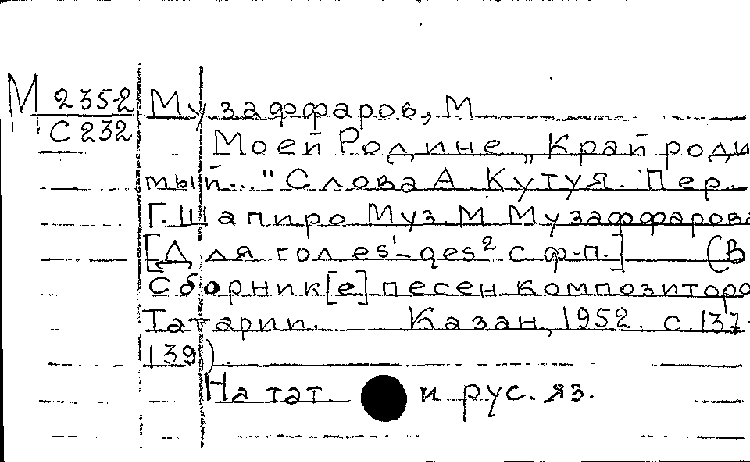 М 2352
С 232
Музаффаров, М
Моей Родине „Край роди
мый..." Слова А. Кутуя. Пер.
Г. Шапиро Муз. М. Музаффарова
[Для гол es¹-ges² с ф-п.] (В
Сборник[е] песен композиторо
Татарии. Казан, 1952. с 137-
139)
На тат. и рус. яз.